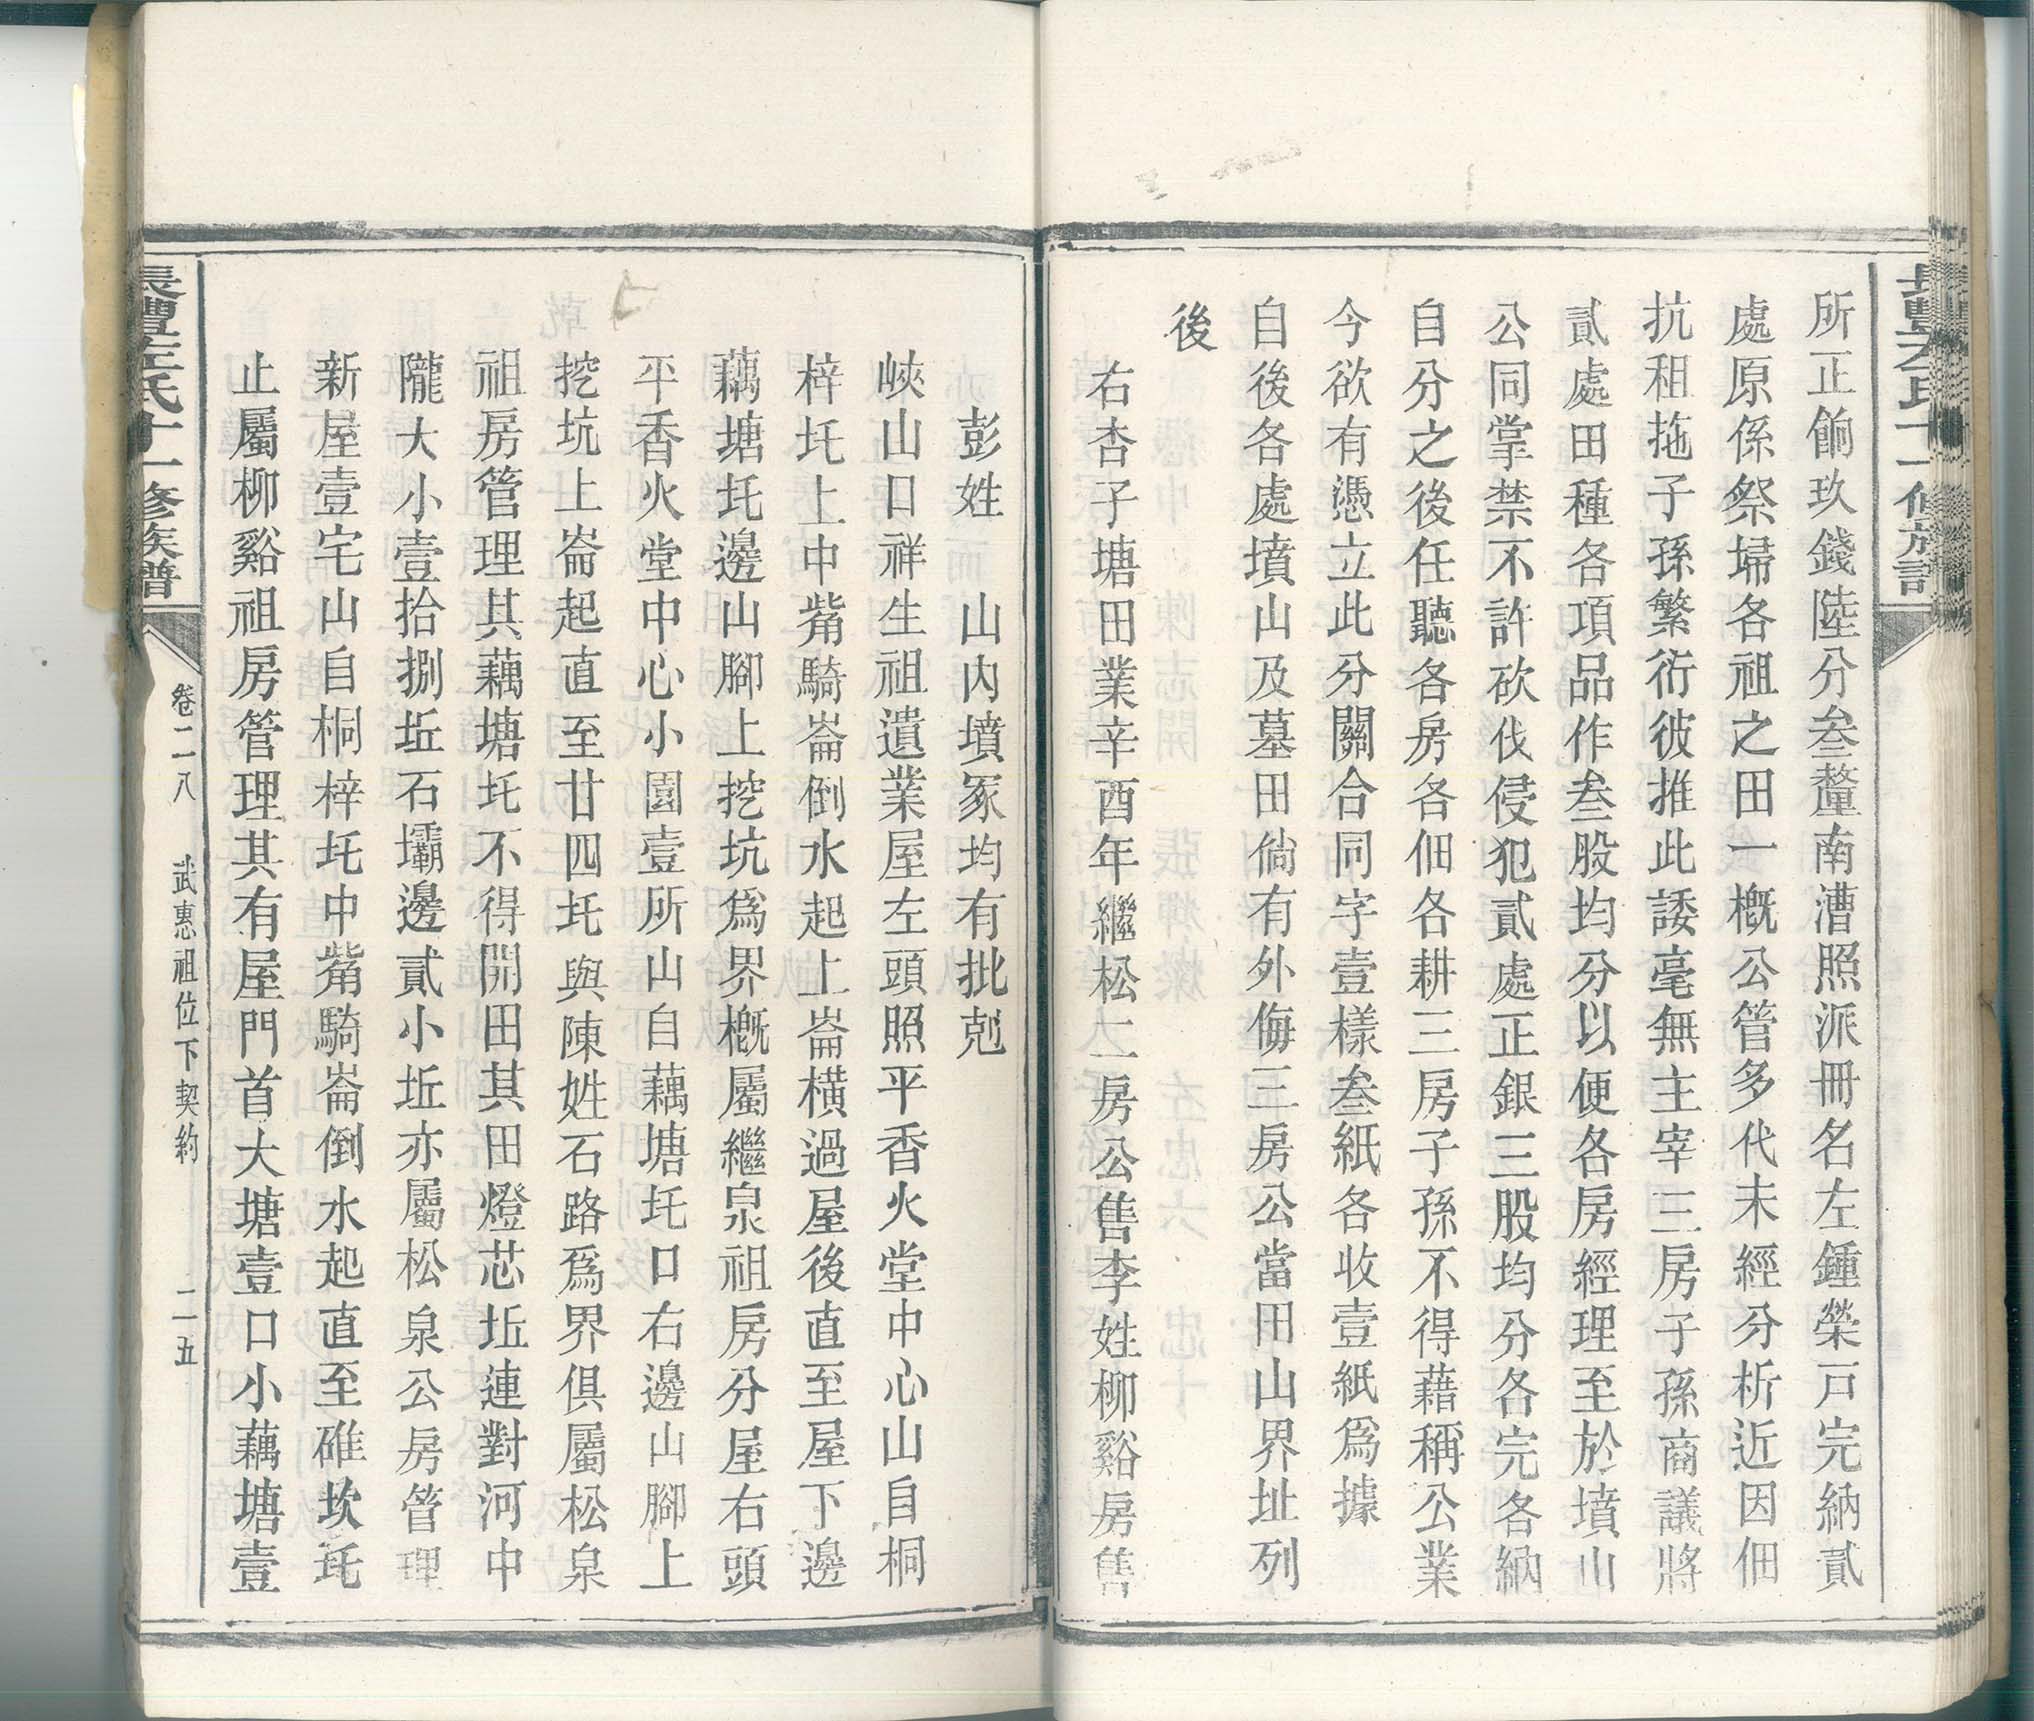 所正餉玖錢陸分叁釐南漕照派冊名左鍾榮戸完納貳
處原係祭埽各祖之田一概公管多代未經分析近因佃
抗租拖子孫繁衍彼推此諉毫無主宰三房子孫商議將
貳處田種各項品作叁股均分以便各房經理至於墳山
公同掌禁不許砍伐侵犯貳處正銀三股均分各完各納
自分之後任聽各房各佃各耕三房子孫不得藉稱公業
今欲有憑立此分關合同字壹樣叁紙各收壹紙爲據
自後各處墳山及墓田倘有外侮三房公當田山界址列
後
右杏子塘田業辛酉年繼松二房公售李姓柳谿房售
彭姓 山內墳冢均有批剋
峽山口祥生祖遺業屋左頭照平香火堂中心山自桐
梓圫上中觜騎崙倒水起上崙橫過屋後直至屋下邊
藕塘圫邊山腳上挖坑爲界概屬繼泉祖房分屋右頭
平香火堂中心小園壹所山自藕塘圫口右邊山腳上
挖坑上崙起直至廿四圫與陳姓石路爲界俱屬松泉
祖房管理其藕塘圫不得開田其田燈芯坵連對河中
隴大小壹拾捌坵石壩邊貳小坵亦屬松泉公房管理
新屋壹宅山自桐梓圫中觜騎崙倒水起直至碓坎圫
止屬柳谿祖房管理其有屋門首大塘壹口小藕塘壹
卷二八 武惠祖位下契約 二五